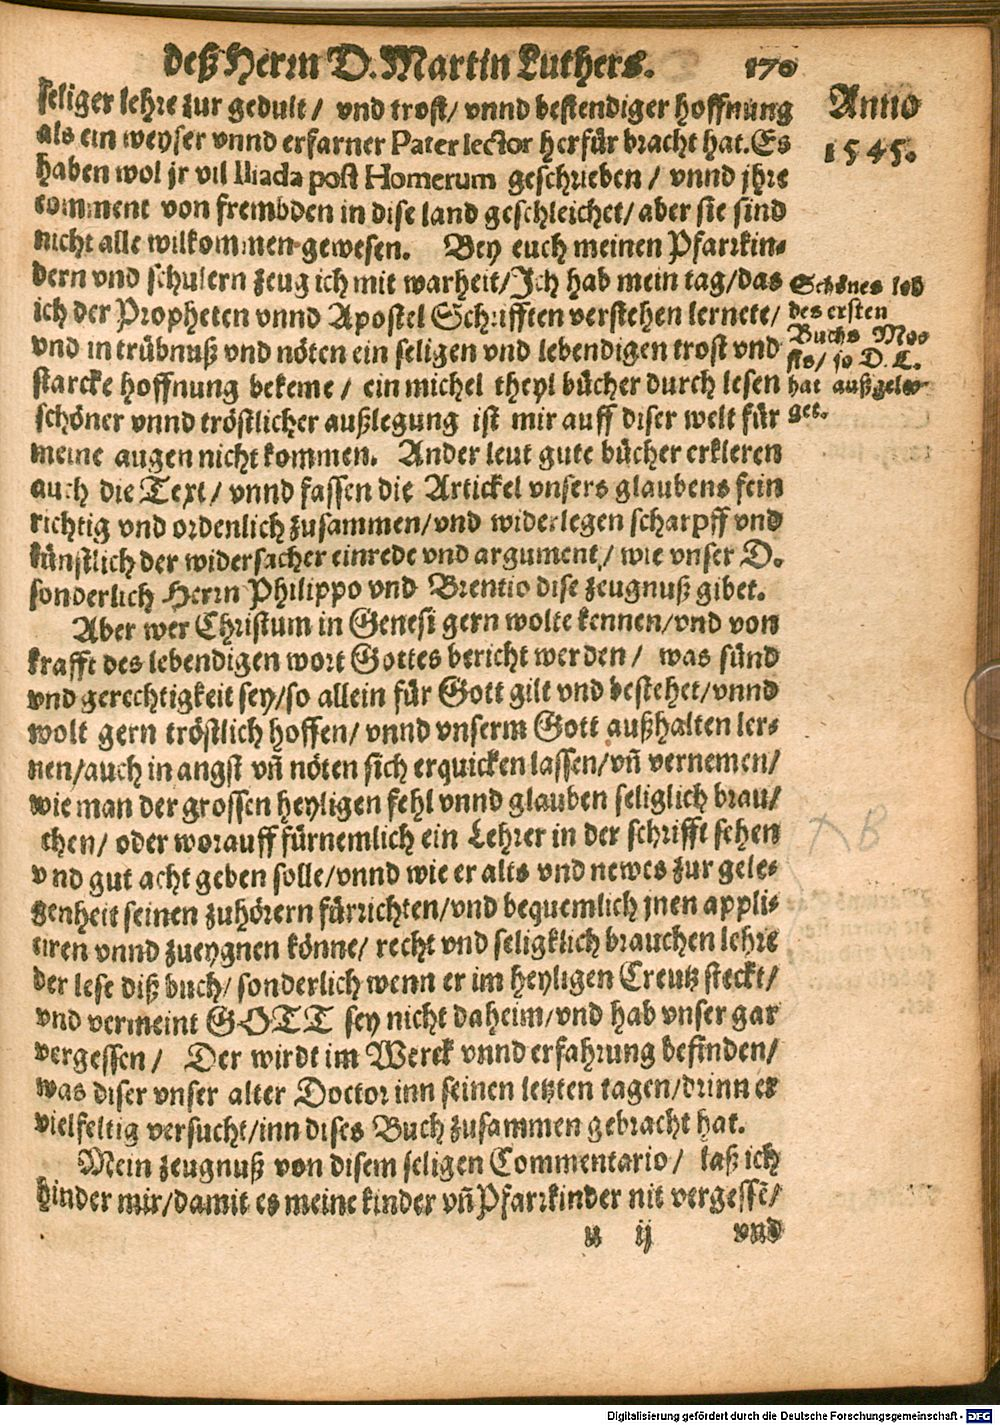 deß Herrn D. Martin Luthers. 170
seliger lehre zur gedult / vnd trost / vnnd bestendiger hoffnung
als ein weyser vnnd erfarner Pater lector herfür bracht hat. Es
haben wol jr vil Iliada post Homerum geschrieben / vnnd jhre
comment von frembden in dise land geschleichet / aber sie sind
nicht alle wilkommen gewesen. Bey euch meinen Pfarrkin-
dern vnd schulern zeug ich mit warheit / Ich hab mein tag / das
ich der Propheten vnnd Apostel Schrifften verstehen lernete /
vnd in trübnuß vnd nöten ein seligen vnd lebendigen trost vnd
starcke hoffnung bekeme / ein michel theyl bücher durch lesen
schöner vnnd tröstlicher außlegung ist mir auff diser welt für
meine augen nicht kommen. Ander leut gute bücher erkleren
auch die Text / vnnd fassen die Artickel vnsers glaubens fein
richtig vnd ordenlich zusammen / vnd widerlegen scharpff vnd
künstlich der widersacher einrede vnd argument / wie vnser D.
sonderlich Herrn Philippo vnd Brentio dise zeugnuß gibet.
Aber wer Christum in Genesi gern wolte kennen / vnd von
krafft des lebendigen wort Gottes bericht werden / was sünd
vnd gerechtigkeit sey / so allein für Gott gilt vnd bestehet / vnnd
wolt gern tröstlich hoffen / vnnd vnserm Gott außhalten ler-
nen / auch in angst vñ nöten sich erquicken lassen / vñ vernemen /
wie man der grossen heyligen fehl vnnd glauben seliglich brau /
chen / oder worauff fürnemlich ein Lehrer in der schrifft sehen
vnd gut acht geben solle / vnnd wie er alts vnd newes zur gele-
genheit seinen zuhörern fürrichten / vnd bequemlich jnen appli-
ciren vnnd zueygnen könne / recht vnd seligklich brauchen lehre
der lese diß buch / sonderlich wenn er im heyligen Creutz steckt /
vnd vermeint GOTT sey nicht daheim / vnd hab vnser gar
vergessen / Der wirdt im Werck vnnd erfahrung befinden /
was diser vnser alter Doctor inn seinen letzten tagen / drinn er
vielfeltig versucht / inn dises Buch zusammen gebracht hat.
Mein zeugnuß von disem seligen Commentario / laß ich
hinder mir / damit es meine kinder vñ Pfarrkinder nit vergessẽ /
u ij vnd
Anno
1545.
Schönes lob
des ersten
Buchs Mo-
sis / so D. L.
hat außgele-
get.
AB
Digitalisierung gefördert durch die Deutsche Forschungsgemeinschaft - DFG